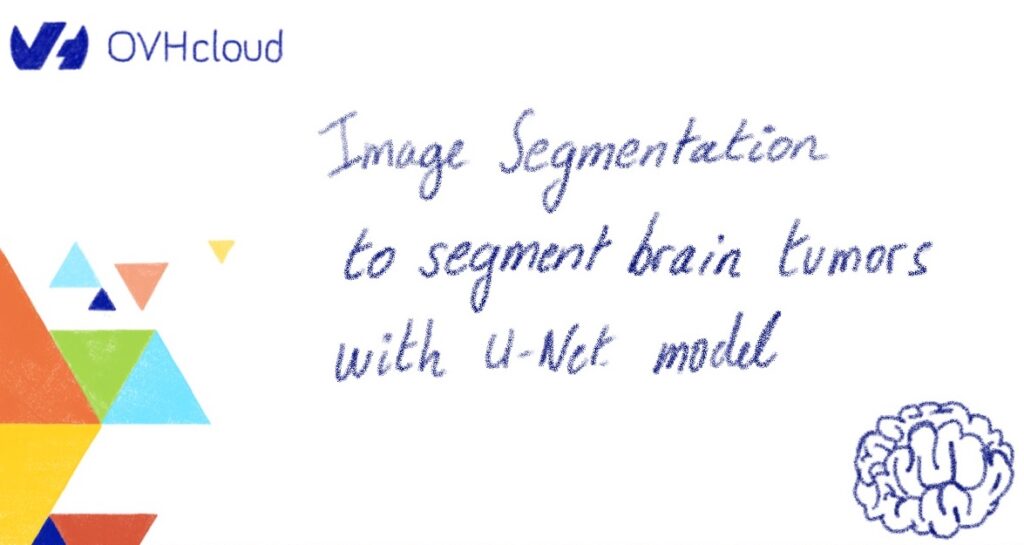 OVHcloud
Image Segmentation
to segment brain tumors
with U-Net model